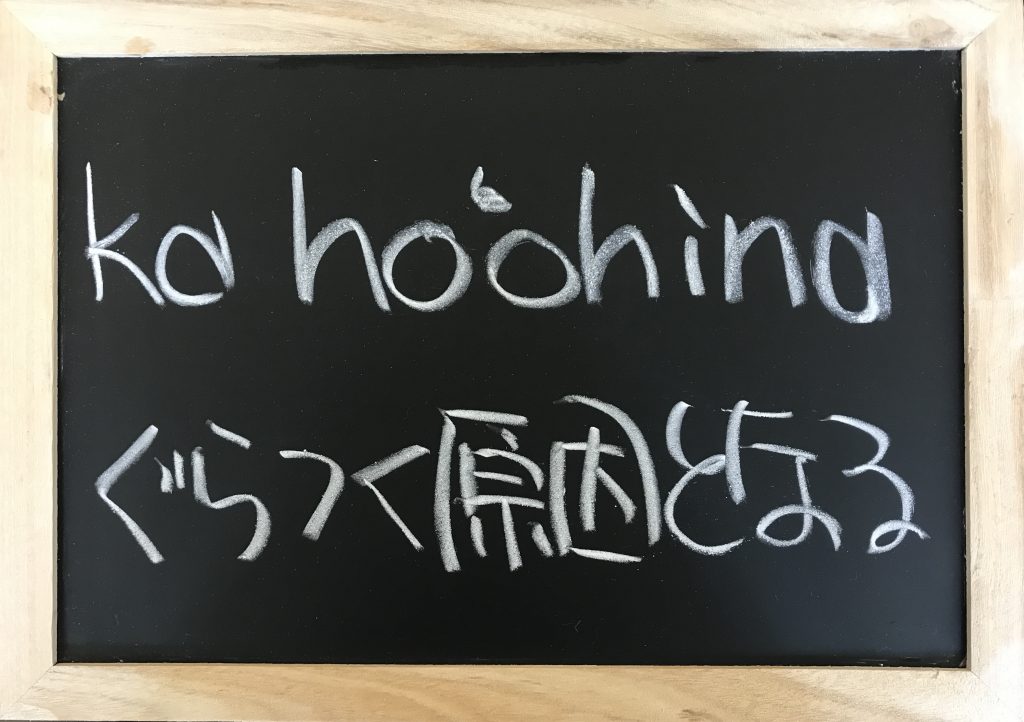 ka hoʻohina
ぐらつく原因となる